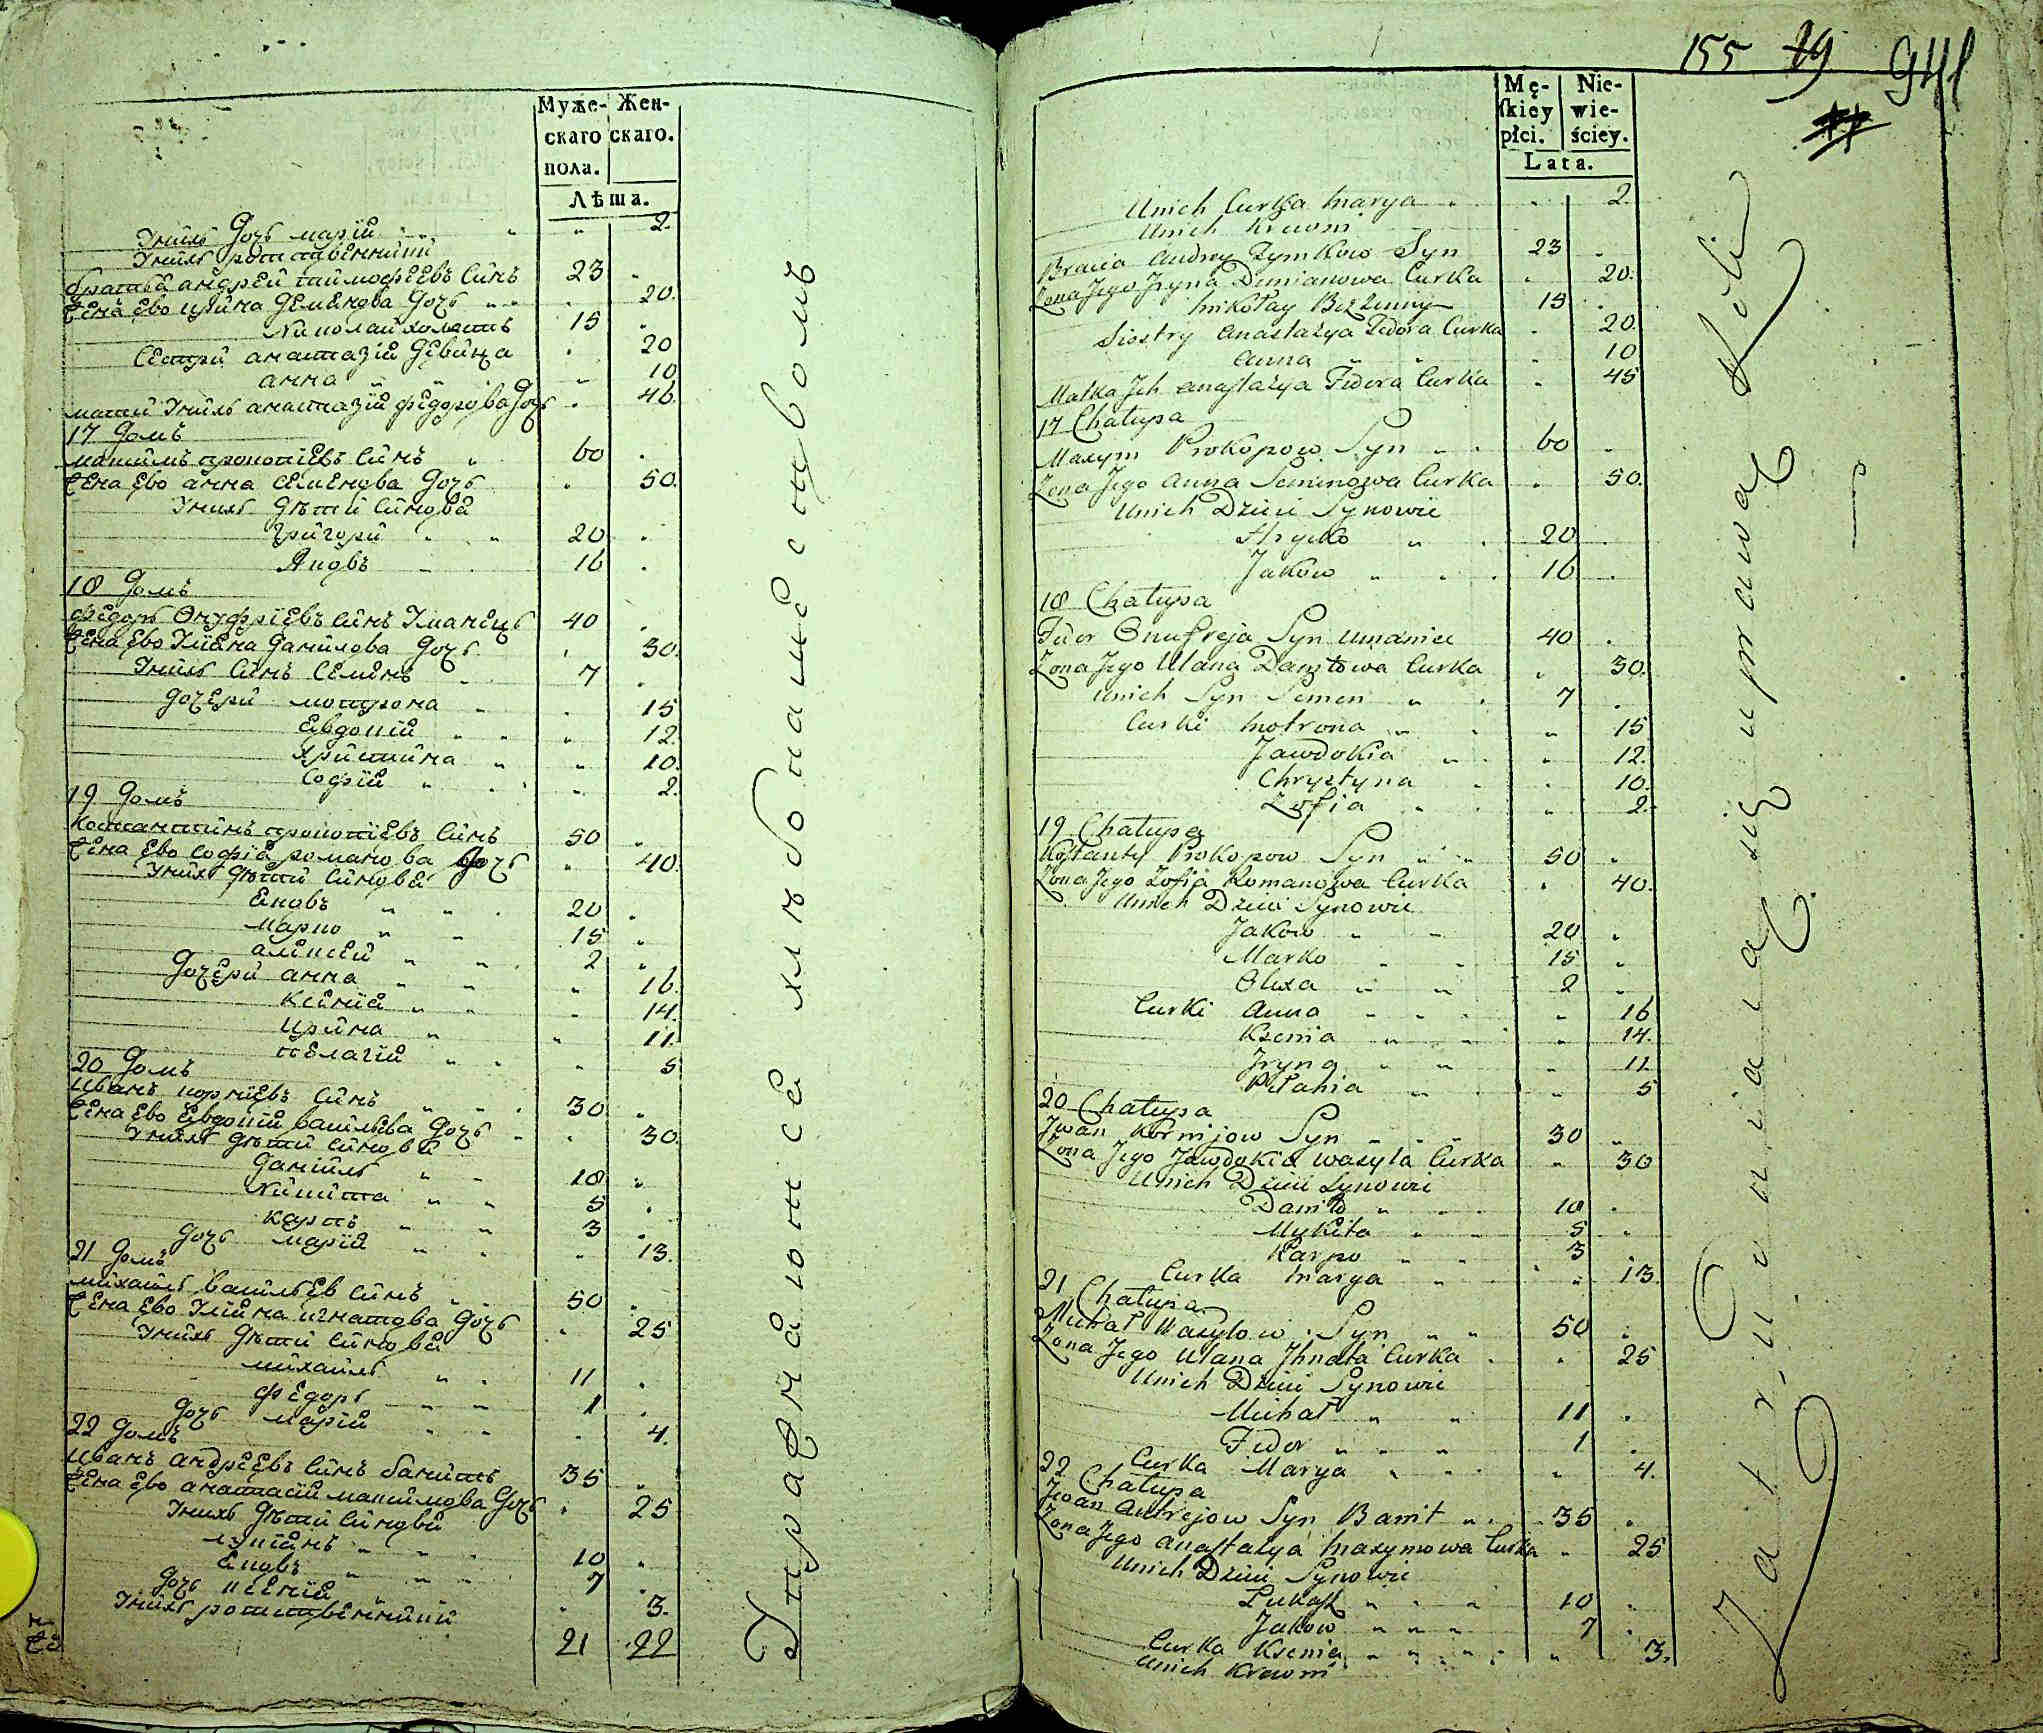 Муже- Жен-
скаго скаго.
пола.
Лѣта.
Унихъ Дочь марія " " 2.
Унихъ родственники
братья андрей тимофѣевъ Синъ 23 "
Жена Ево ирина Деменова Дочь " " 20.
Николай холостъ 15 "
Сестри анастазія Дѣвица " 20
анна " " 10
мати Ихъ анастазія федорова Дочь " 46.
17 Домъ
максимъ прокопіевъ Синъ 60 "
Жена Ево анна Семенова Дочь " 50.
Унихъ Дѣти Синовя
Григори " " 20 "
Яковъ 16 "
18 Домъ
федоръ Онуфріевъ Синъ Уманецъ 40 "
Жена Ево Уліяна Данилова Дочь " 30.
Унихъ Синъ Семенъ 7 "
Дочери мотрона " 15
Евдокія " 12.
Христина " 10.
Софія " 2.
19 Домъ
Костантинъ прокопіевъ Синъ 50 "
Жена Ево Софія романова Дочь " 40.
Унихъ Дѣти Синовя
Яковъ 20 "
Марко 15 "
алексей 2 "
Дочери анна " 16.
Ксенія " 14.
Ирина " 11.
пелагія " 5
20 Домъ
Иванъ корніевъ Синъ 30 "
Жена Ево Евдокія василева Дочь " 30.
Унихъ Дѣти Синовя
Данило 18 "
Никита 5 "
Карпъ 3 "
Дочь марія " 13.
21 Домъ
михайло васильев Синъ 50 "
Жена Ево Уліяна игнатова Дочь " 25
Унихъ Дѣти Синовя
михайло 11 "
федоръ 1 "
Дочь марія " 4.
22 Домъ
Иванъ андреевъ Синъ банитъ 35 "
Жена Ево анастасія максимова Дочь " 25
Унихъ Дѣти Синовя
лукіянъ 10 "
Яковъ 7 "
Дочь ксенія " 3.
Унихъ родственники
21 22
Упражнаются хлѣбопашествомъ
155 79 941
Mę- Nie-
ſkiey wie-
płci. ściey.
Lata.
Unich Curka Marya " " 2.
Unich Krewni
Bracia Andrey Tymkow Syn 23 "
Zona Jego Jryna Demianowa Curka " 20.
Mikołay Bezżenny 15 "
Siostry Anastazya Fedora Curka " 20.
Anna " " 10
Matka Jch Anastazya Fedora Curka " 45
17 Chałupa
Maxym Prokopow Syn 60 "
Zona Jego Anna Semenowa Curka " 50.
Unich Dzieci Synowie
Hrycko " 20 "
Jakow " 16 "
18 Chałupa
Fedor Onufreja Syn Umaniec 40 "
Zona Jego Ulana Daniłowa Curka " 30.
Unich Syn Semen " 7 "
Curki Motrona " 15
Jawdokia " 12.
Chrystyna " 10.
Zofia " 2.
19 Chałupa
Kostanty Prokopow Syn 50 "
Zona Jego Zofia Romanowa Curka " 40.
Unich Dzieci Synowie
Jakow 20 "
Marko 15 "
Olexa 2 "
Curki Anna " 16
Ksenia " 14.
Jryna " 11
Pelahia " 5
20 Chałupa
Jwan Kornijow Syn 30 "
Zona Jego Jawdokia Wasyla Curka " 30
Unich Dzieci Synowie
Daniło 18 "
Mykita 5 "
Karpo 3 "
Curka Marya " 13.
21 Chałupa
Michał Wasylow Syn 50 "
Zona Jego Ulana Jhnata Curka " 25
Unich Dzieci Synowie
Michał 11 "
Fedor 1 "
Curka Marya " 4.
22 Chałupa
Jwan Andrejow Syn Banit 35 "
Zona Jego Anastazya Maxymowa Curka " 25
Unich Dzieci Synowie
Łukasz 10 "
Jakow 7 "
Curka Ksenia " 3.
Unich Krewni
Zatrudniaią się uprawą Roli